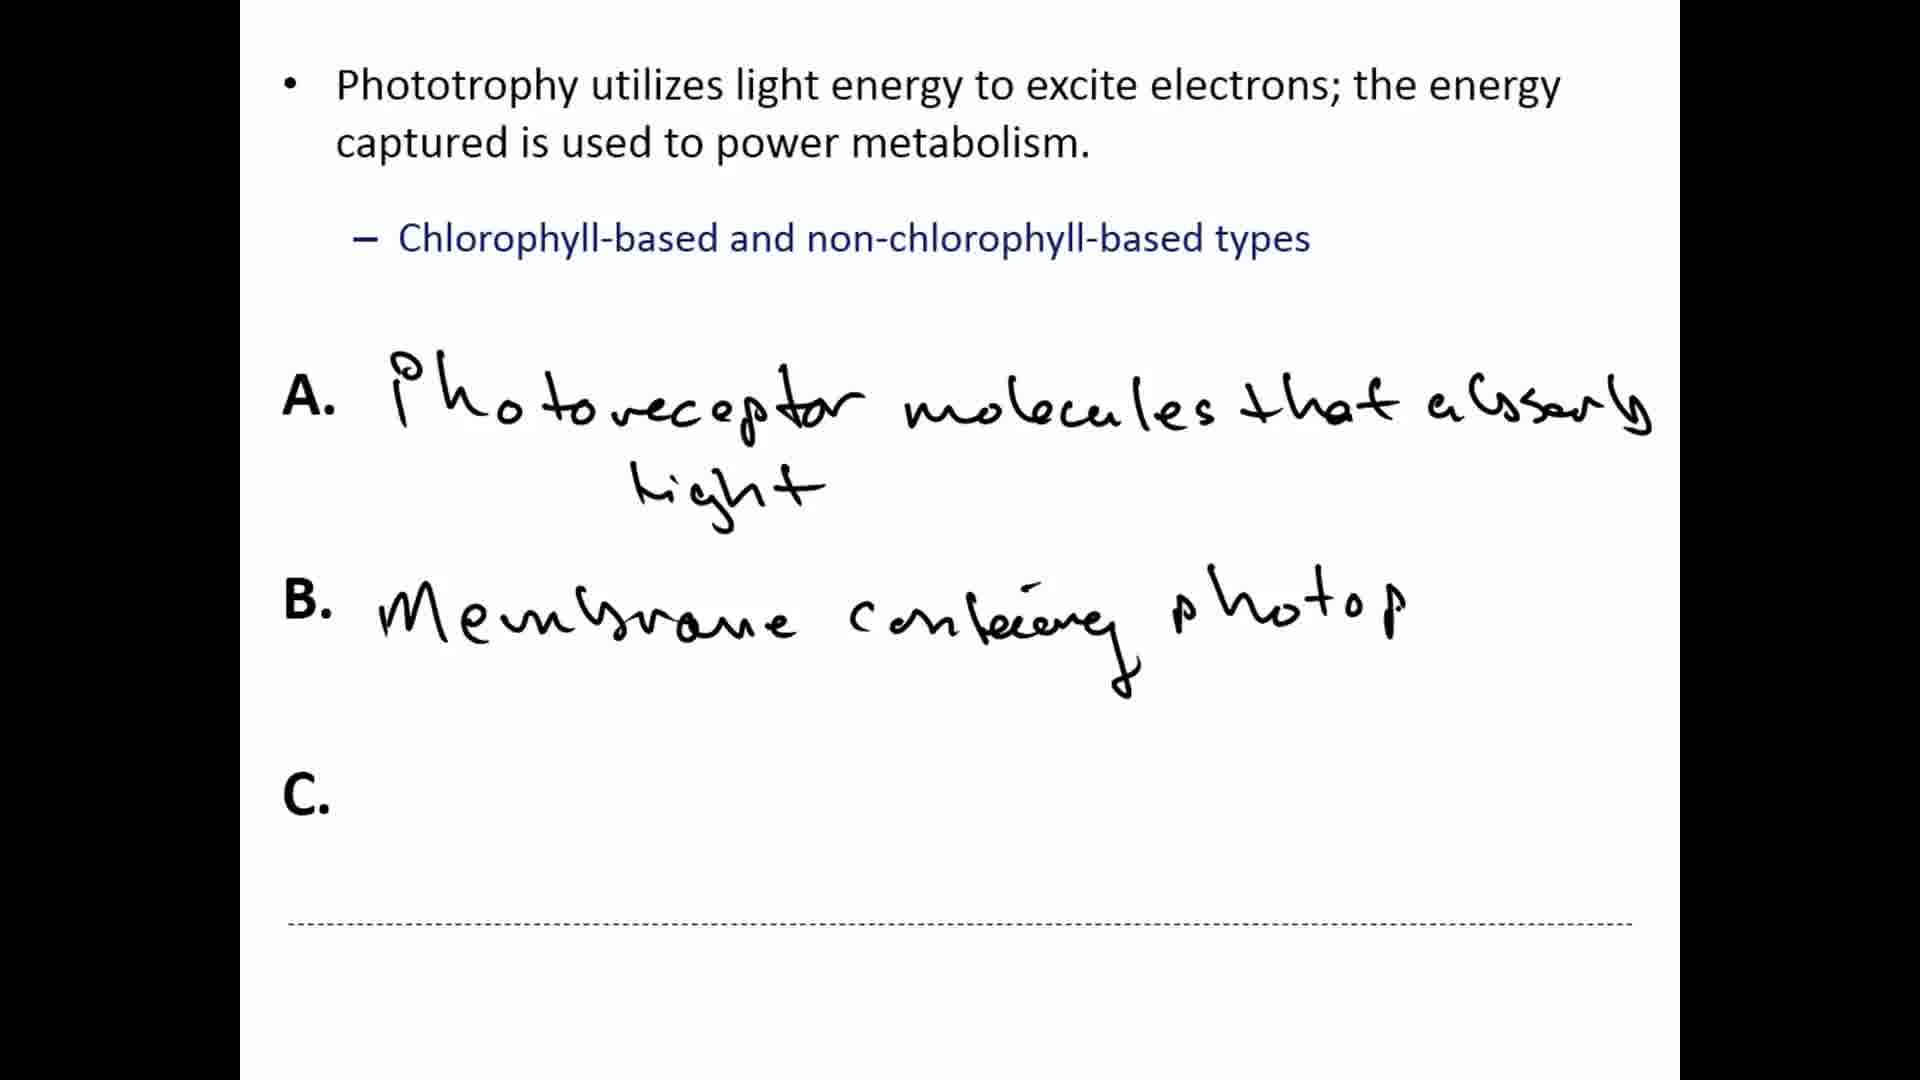 • Phototrophy utilizes light energy to excite electrons; the energy
captured is used to power metabolism.
– Chlorophyll-based and non-chlorophyll-based types
A. Photoreceptor molecules that absorb
light
B. Membrane containing photop
C.